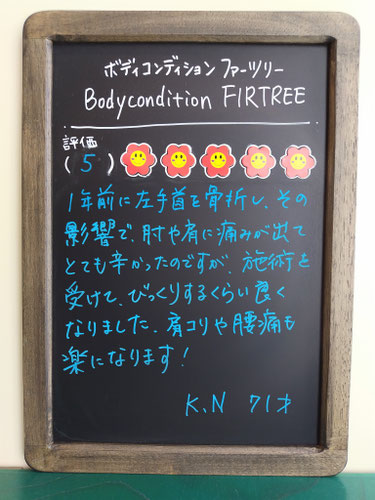 ボディコンディション ファーツリー
Bodycondition FIRTREE
評価
(5)
1年前に左手首を骨折し、その
影響で、肘や肩に痛みが出て
とても辛かったのですが、施術を
受けて、びっくりするくらい良く
なりました。肩コリや腰痛も
楽になります!
K.N 71才